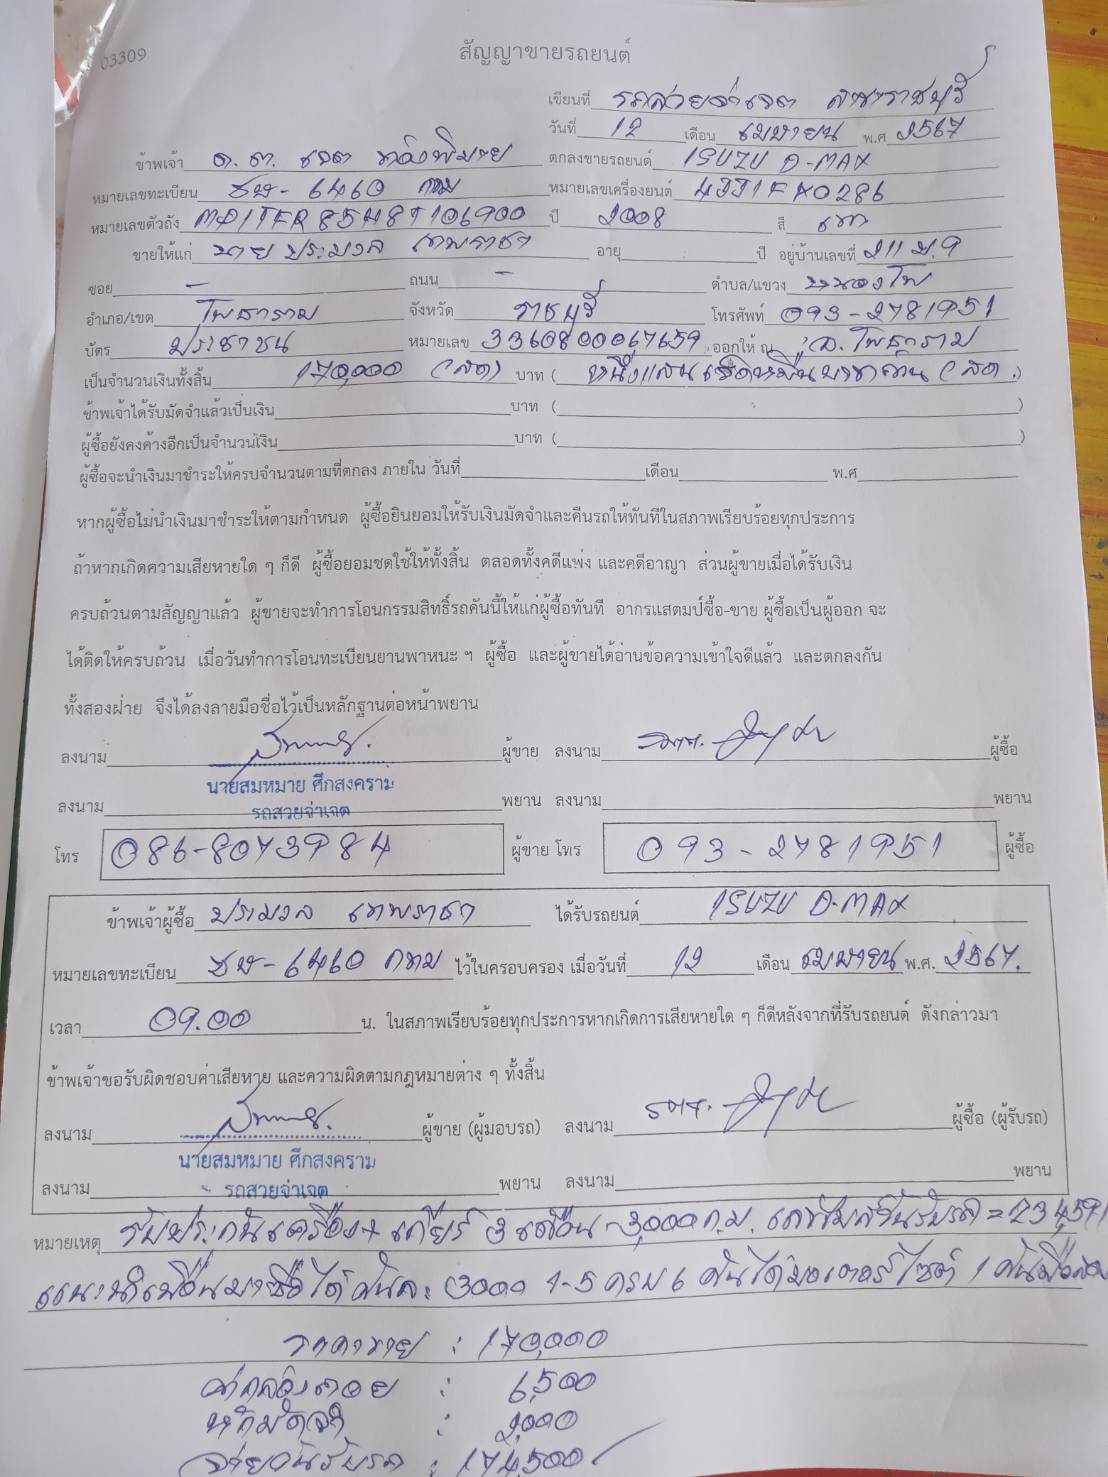 03309
สัญญาขายรถยนต์
เขียนที่ รถสวยจ่าเจต สาขาราชบุรี
วันที่ 12 เดือน เมษายน พ.ศ 2567
ข้าพเจ้า ด.ต. เจต ตกลงขายรถยนต์ ISUZU D-MAX
หมายเลขทะเบียน ชษ-6460 กทม หมายเลขเครื่องยนต์ 4JJ1FX0286
หมายเลขตัวถัง MP1TFR85H8T106900 ปี 2008 สี เทา
ขายให้แก่ นาย ประมวล เทพราชา อายุ ปี อยู่บ้านเลขที่ 211 ม.9
ซอย - ถนน - ตำบล/แขวง หนองโพ
อำเภอ/เขต โพธาราม จังหวัด ราชบุรี โทรศัพท์ 093-2781951
บัตร ประชาชน หมายเลข 3360800067659 ออกให้ ณ อ. โพธาราม
เป็นจำนวนเงินทั้งสิ้น 170,000 (สด) บาท ( หนึ่งแสนเจ็ดหมื่นบาทถ้วน (สด.)
ข้าพเจ้าได้รับมัดจำแล้วเป็นเงิน บาท ( )
ผู้ซื้อยังคงค้างอีกเป็นจำนวนเงิน บาท ( )
ผู้ซื้อจะนำเงินมาชำระให้ครบจำนวนตามที่ตกลง ภายใน วันที่ เดือน พ.ศ
หากผู้ซื้อไม่นำเงินมาชำระให้ตามกำหนด ผู้ซื้อยินยอมให้รับเงินมัดจำและคืนรถให้ทันทีในสภาพเรียบร้อยทุกประการ
ถ้าหากเกิดความเสียหายใด ๆ ก็ดี ผู้ซื้อยอมชดใช้ให้ทั้งสิ้น ตลอดทั้งคดีแพ่ง และคดีอาญา ส่วนผู้ขายเมื่อได้รับเงิน
ครบถ้วนตามสัญญาแล้ว ผู้ขายจะทำการโอนกรรมสิทธิ์รถคันนี้ให้แก่ผู้ซื้อทันที อากรแสตมป์ซื้อ-ขาย ผู้ซื้อเป็นผู้ออก จะ
ได้ติดให้ครบถ้วน เมื่อวันทำการโอนทะเบียนยานพาหนะ ฯ ผู้ซื้อ และผู้ขายได้อ่านข้อความเข้าใจดีแล้ว และตกลงกัน
ทั้งสองฝ่าย จึงได้ลงลายมือชื่อไว้เป็นหลักฐานต่อหน้าพยาน
ลงนาม ผู้ขาย ลงนาม ผู้ซื้อ
นายสมหมาย ศึกสงคราม
ลงนาม รถสวยจ่าเจต พยาน ลงนาม พยาน
โทร 086-8073984 ผู้ขาย โทร 093-2781951 ผู้ซื้อ
ข้าพเจ้าผู้ซื้อ ประมวล เทพราชา ได้รับรถยนต์ ISUZU D-MAX
หมายเลขทะเบียน ชษ-6460 กทม ไว้ในครอบครอง เมื่อวันที่ 12 เดือน เมษายน พ.ศ. 2567.
เวลา 09.00 น. ในสภาพเรียบร้อยทุกประการหากเกิดการเสียหายใด ๆ ก็ดีหลังจากที่รับรถยนต์ ดังกล่าวมา
ข้าพเจ้าขอรับผิดชอบค่าเสียหาย และความผิดตามกฎหมายต่าง ๆ ทั้งสิ้น
ลงนาม ผู้ขาย (ผู้มอบรถ) ลงนาม ผู้ซื้อ (ผู้รับรถ)
นายสมหมาย ศึกสงคราม
ลงนาม รถสวยจ่าเจต พยาน ลงนาม พยาน
หมายเหตุ รับประกันเครื่อง+เกียร์ 3 เดือน-3,000 ก.ม. เลขไมล์วันรับรถ = 234,591
แนะนำเพื่อนมาซื้อได้คันละ 3000 1-5 ครบ 6 คันได้มอเตอร์ไซต์ 1 คัน
ราคาขาย : 170,000
: 6,500
หักมัดจำ : 2,000
จ่ายวันรับรถ : 174,500